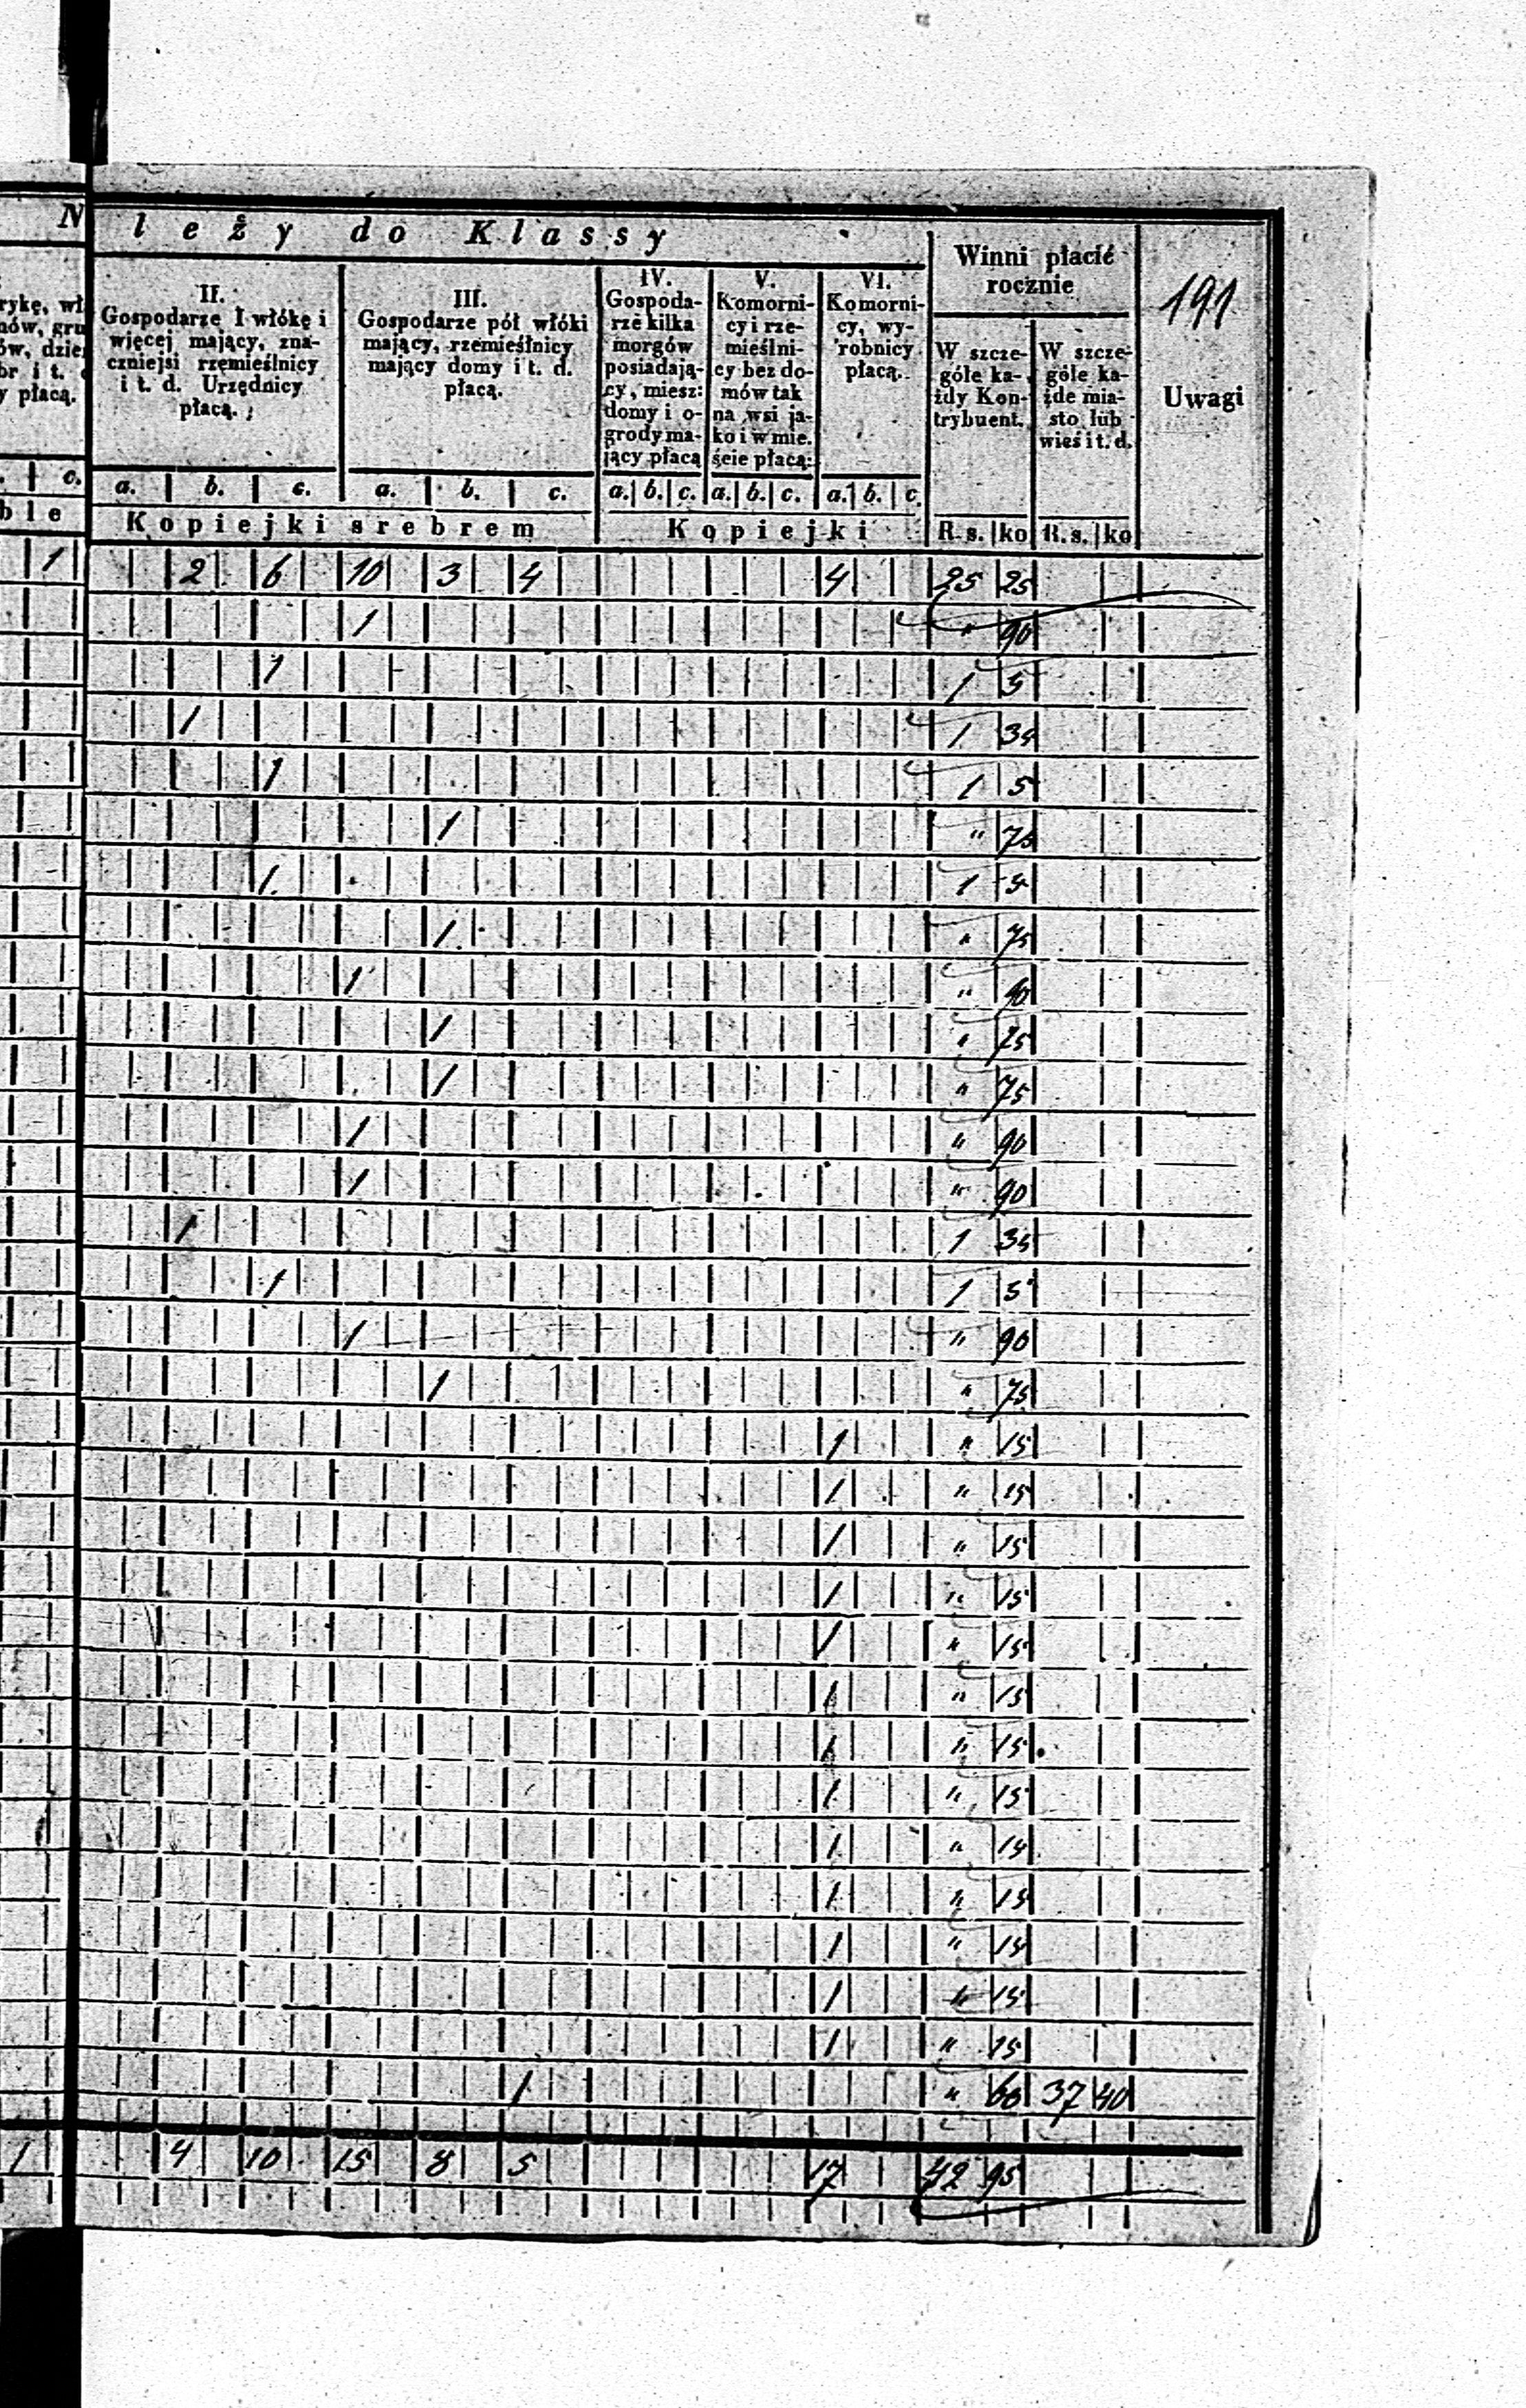 N
leży do Klassy
Winni płacić rocznie
191
Uwagi
rykę, wł
nów, gru
ów, dzie
br i t.
y płacą.
c.
ble
II.
Gospodarze 1 włókę i
więcej mający, zna-
czniejsi rzęmieślnicy
i t. d. Urzędnicy
płacą.
III.
Gospodarze pół włóki
mający, rzemieślnicy
mający domy i t. d.
płacą.
IV.
Gospoda-
rze kilka
morgów
posiadają-
cy, miesz:
domy i o-
grody ma-
jący płacą
V.
Komorni-
cy i rze-
mieślni-
cy bez do-
mów tak
na wsi ja-
ko i w mie.
ście płacą:
VI.
Komorni-
cy, wy-
robnicy
płacą.
W szcze-
góle ka-
żdy Kon-
trybuent.
W szcze-
góle ka-
żde mia-
sto lub
wieś i t. d.
a. b. c. a. b. c. a. b. c. a. b. c. a. b. c.
Kopiejki srebrem Kopiejki R. s. ko R. s. ko
1 2 6 10 3 4 4 25 25
1 " 90
1 1 5
1 1 35
1 1 5
1 " 75
1 1 5
1 " 75
1 " 90
1 " 75
1 " 75
1 " 90
1 " 90
1 1 35
1 1 5
1 " 90
1 " 75
1 " 15
1 " 15
1 " 15
1 " 15
1 " 15
1 " 15
1 " 15
1 " 15
1 " 15
1 " 15
1 " 15
1 " 15
1 " 15
1 " 60 37 40
1 4 10 15 8 5 17 42 95